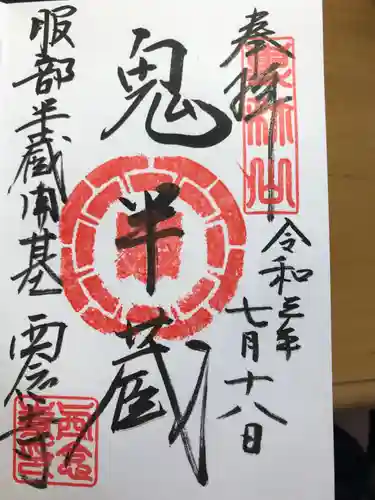 奉拝
令和三年
七月十八日
鬼半蔵
服部半蔵開基
西念寺